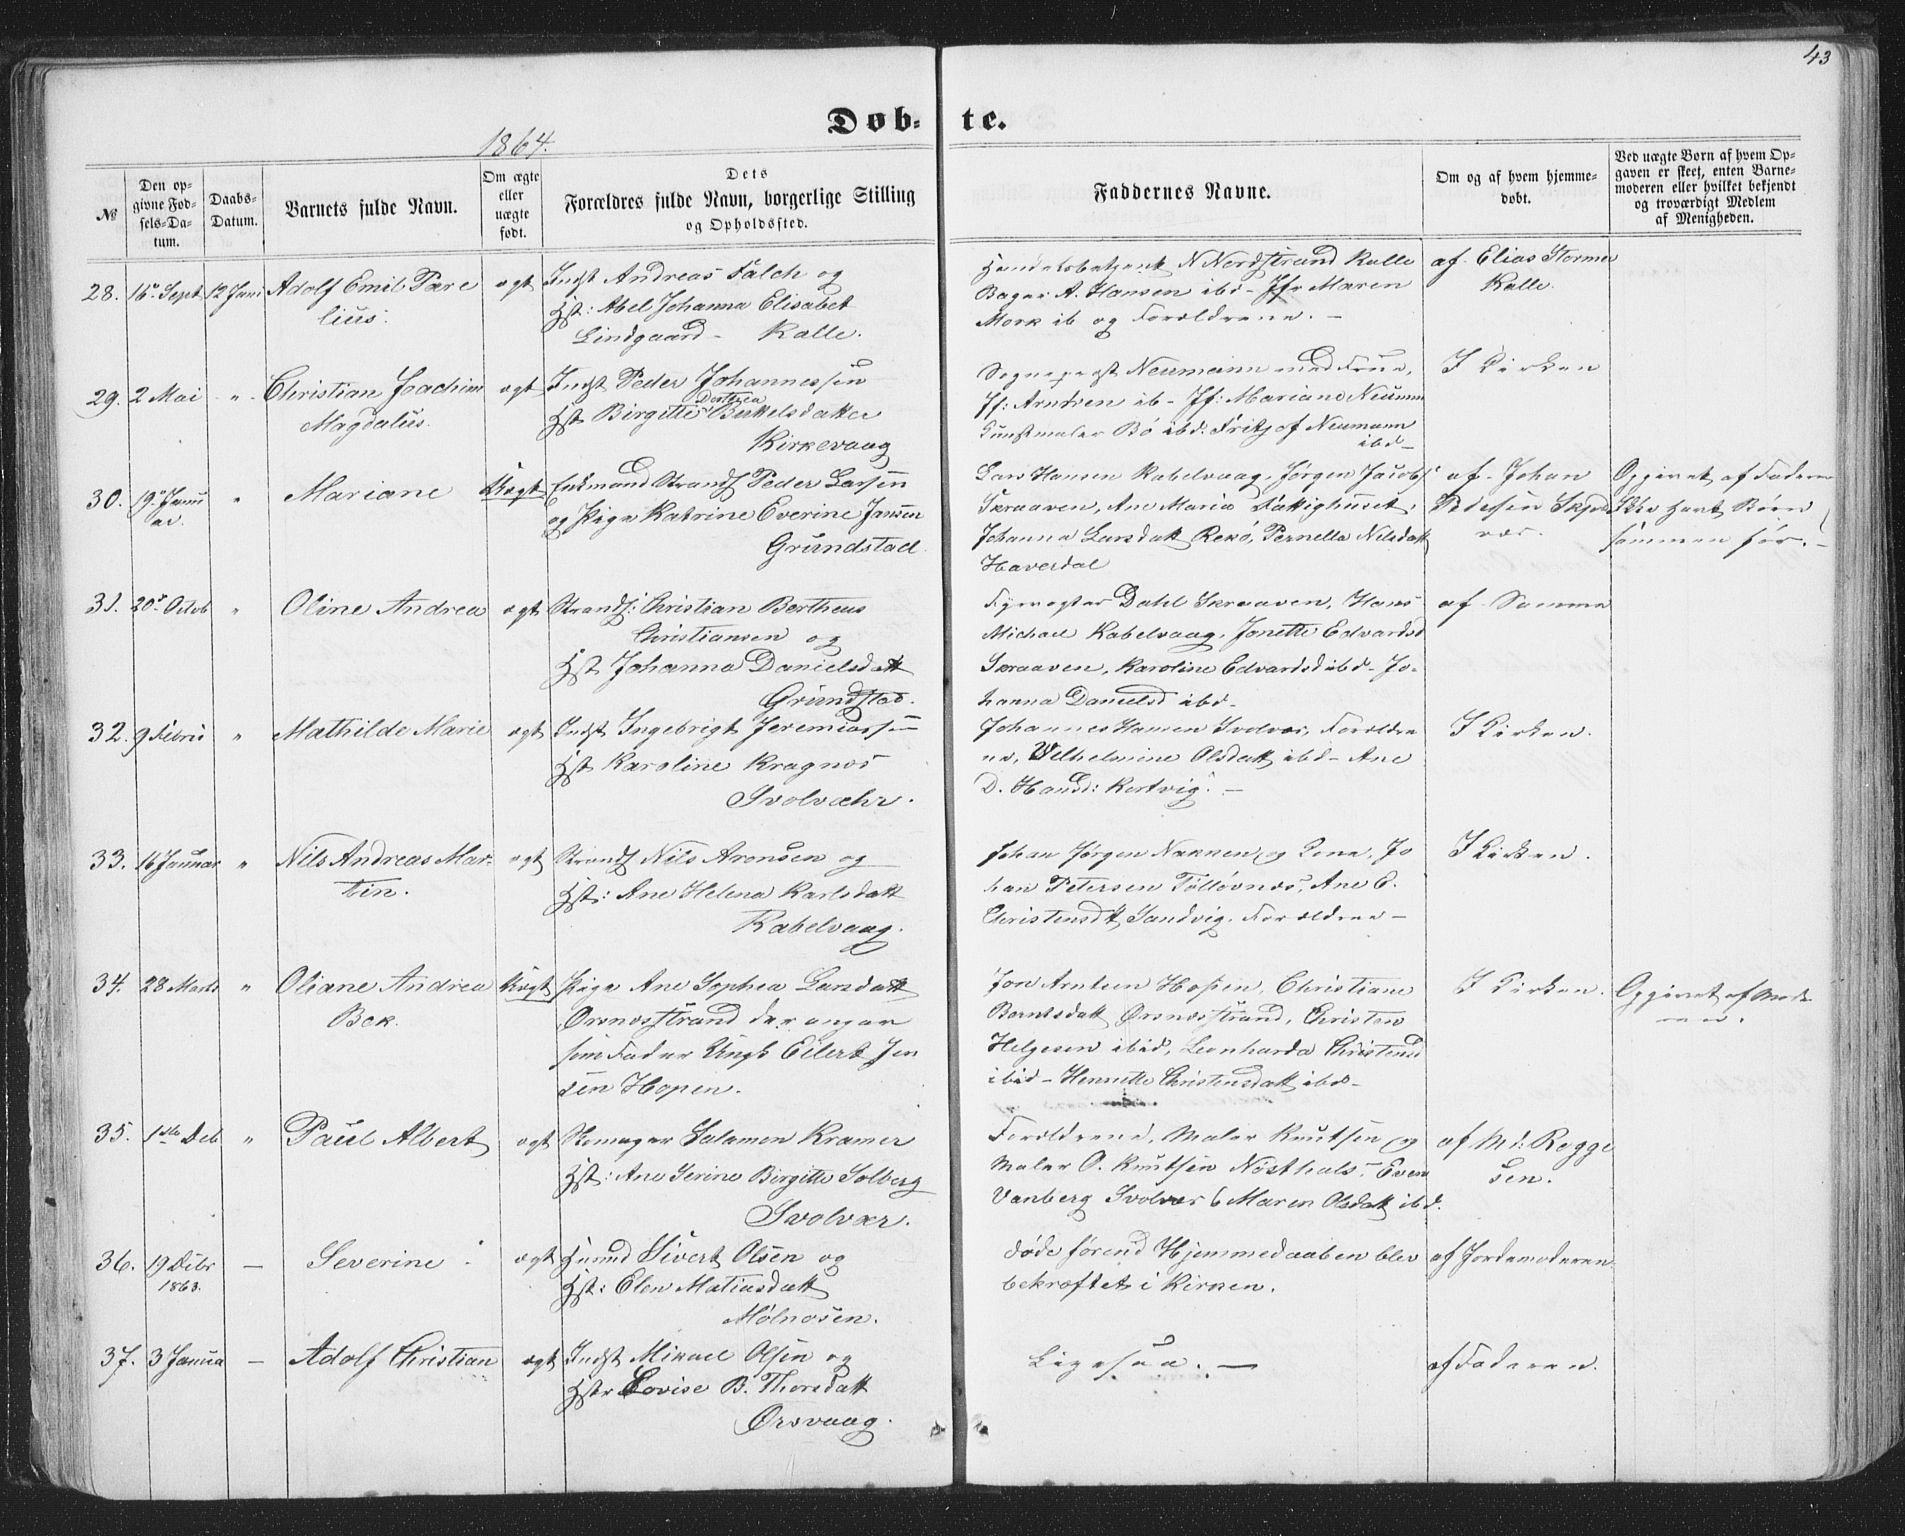 43
Døb-te.
1864.
№
Den op-
givne Fød-
sels-Da-
tum.
Daabs-
Datum.
Barnets fulde Navn.
Om ægte
eller
uægte
født.
Dets
Forældres fulde Navn, borgerlige Stilling
og Opholdssted.
Faddernes Navne.
Om og af hvem hjemme-
døbt.
Ved uægte Børn af hvem Op-
gaven er skeet, enten Barne-
moderen eller hvilket bekjendt
og troværdigt Medlem
af Menigheden.
28. 16. Sept 12 Juni Adolf Emil Pare
lius.
ægt Indst Andreas Falch og
Hst: Abel Johanna Elisabet
Lindgaard - Kalle.
Handelsbetjent N Nordstrand Kalle
Bager A. Hansen ibd - Jfr Maren
Mork ib og Forældrene. -
af Elias Stormer
Kalle.
29. 2 Mai " Christian Joachim
Magdalus.
ægt Indst Peder Johannessen
Hst Birgitte Dorthea Bertelsdatter
Kirkevaag
Sogneprest Neumann med Frue,
Jf: Arntzen ib - Jf: Mariane Neumann
Kunstmaler Bø ibd: Fritjof Neumann
ibd -
I Kirken
30. 19. Janu
ar.
" Mariane Uægt Enkemand Strands Peder Larsen
og Pige Katrine Everine Jansen
Grundstad.
Lars Hansen Kabelvaag, Jørgen Jacobs
Skraaven, Ane Maria Fattighuset,
Johanna Larsdatt Rekø, Pernella Nilsdatt
Haverdal
af Johan
Pedersen Skjel
vær.
Opgivet af Faderen
Ikke havt Børn
sammen før. -
31. 20. Octob " Oline Andrea ægt Strands: Christian Bertheus
Christiansen og
Hst Johanna Danielsdatt
Grundstad.
Fyrvogter Dahl Skraaven, Hans
Michael Kabelvaag, Jonette Edvardsd
Skraaven, Karoline Edvardsd ibd - Jo-
hanna Danielsd ibd -
af Samme
32. 9 Febru " Mathilde Marie ægt Indst Ingebrigt Jeremiassen
Hst Karoline Kragnæs
Svolvæhr.
Johannes Hansen Svolvær, Forældre
ne, Wilhelmine Olsdatt ibd - Ane
D. Hansd: Kortvig. -
I Kirken.
33. 16 Januar " Nils Andreas Mar-
tin.
ægt Strands Nils Aronsen og
Hst: Ane Helena Karlsdatt
Kabelvaag.
Johan Jørgen Nannen og Kone, Jo
han Petersen Tølløvnæs, Ane C.
Christensdt Sandvig, Forældrene -
I Kirken.
34. 28 Marts " Oliane Andrea
Bek.
Uægt Pige Ane Sophea Larsdatt
Ørsnæsstrand der angav
som Fader Ungk Eilert Jen
sen Hopen.
Jon Arntsen Hopen, Christiane
Berntsdatt Ørsnæsstrand, Christen
Helgesen ibid, Leonharda Christensd
ibid - Henrette Christensdatt ibd -
I Kirken. Opgivet af Mode
ren.
35. 1ste Deb " Paul Albert ægt Skomager Salamon Kramer
Hst: Ane Serine Birgitte Solberg
Svolvær.
Forældrene, Maler Knutsen og
Maler O. Knutsen Nøsthals, Even
Vanberg Svolvær & Maren Olsdatt ibd.
af Md: Regge
sen.
36. 19 Debr
1863.
— Severine ægt Huusmd Sivert Olsen og
Hst: Elen Matiasdatt
Mølnosen.
døde førend Hjemmedaaben blev
bekræftet i Kirken.
af Jordemoderen.
37. 3 Janua — Adolf Christian ægt Indst Mikael Olsen og
Hstr Lovise B. Thorsdatt
Ørsvaag.
Ligesaa. —
af Faderen.